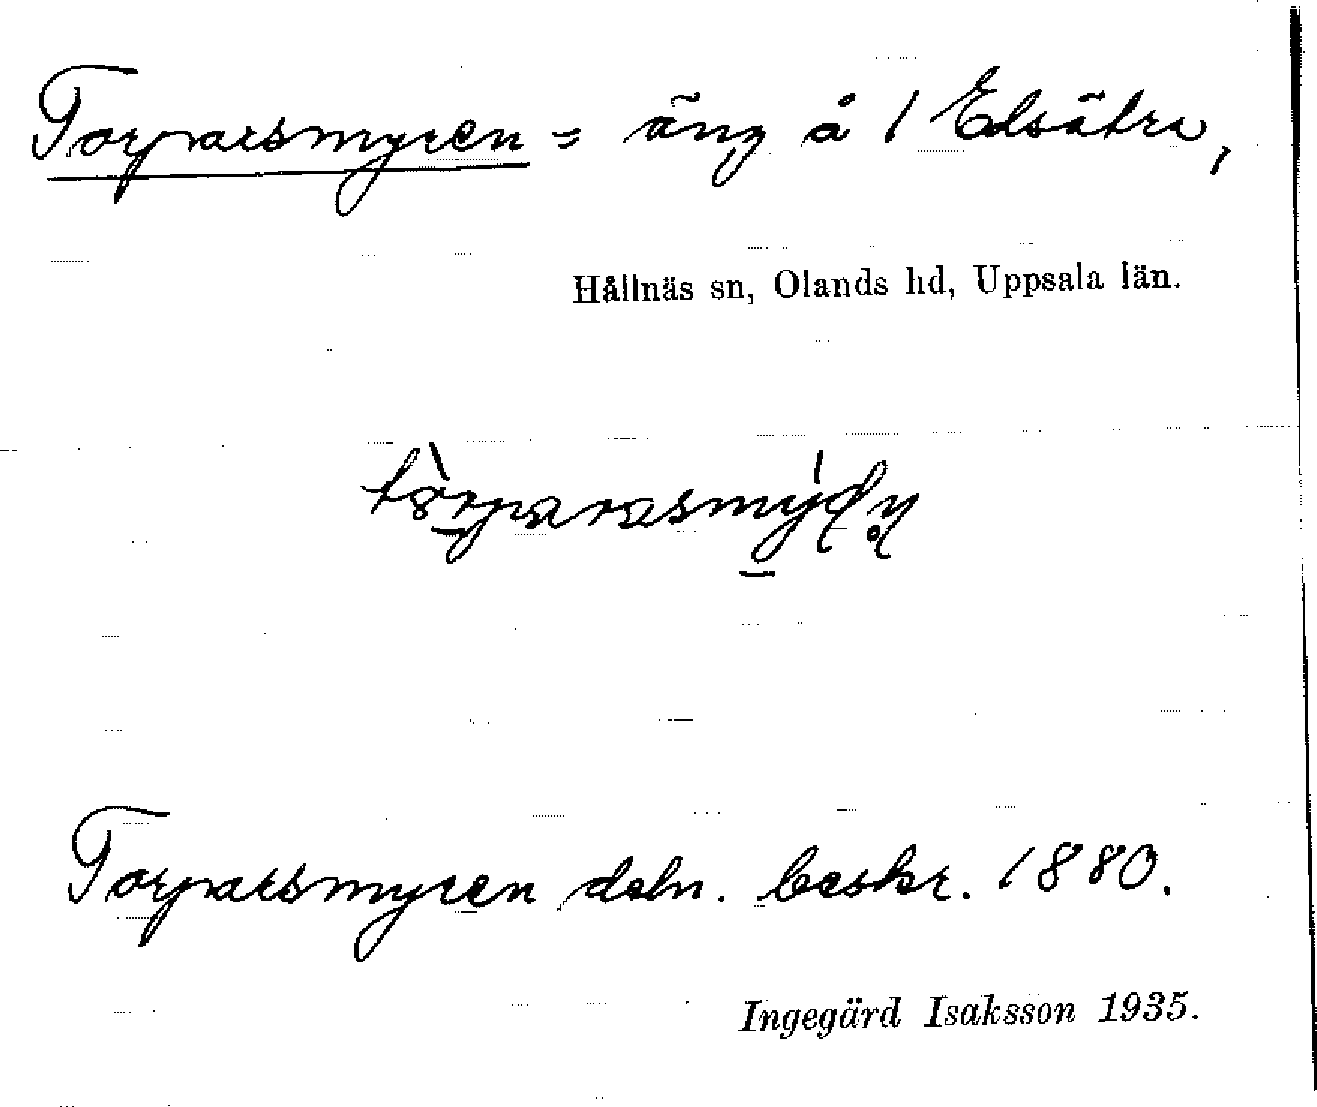 Torparsmyren = äng å 1 Edsätra,
Hållnäs sn, Olands hd, Uppsala län.
Torparsmyren deln. beskr. 1880.
Ingegärd Isaksson 1935.